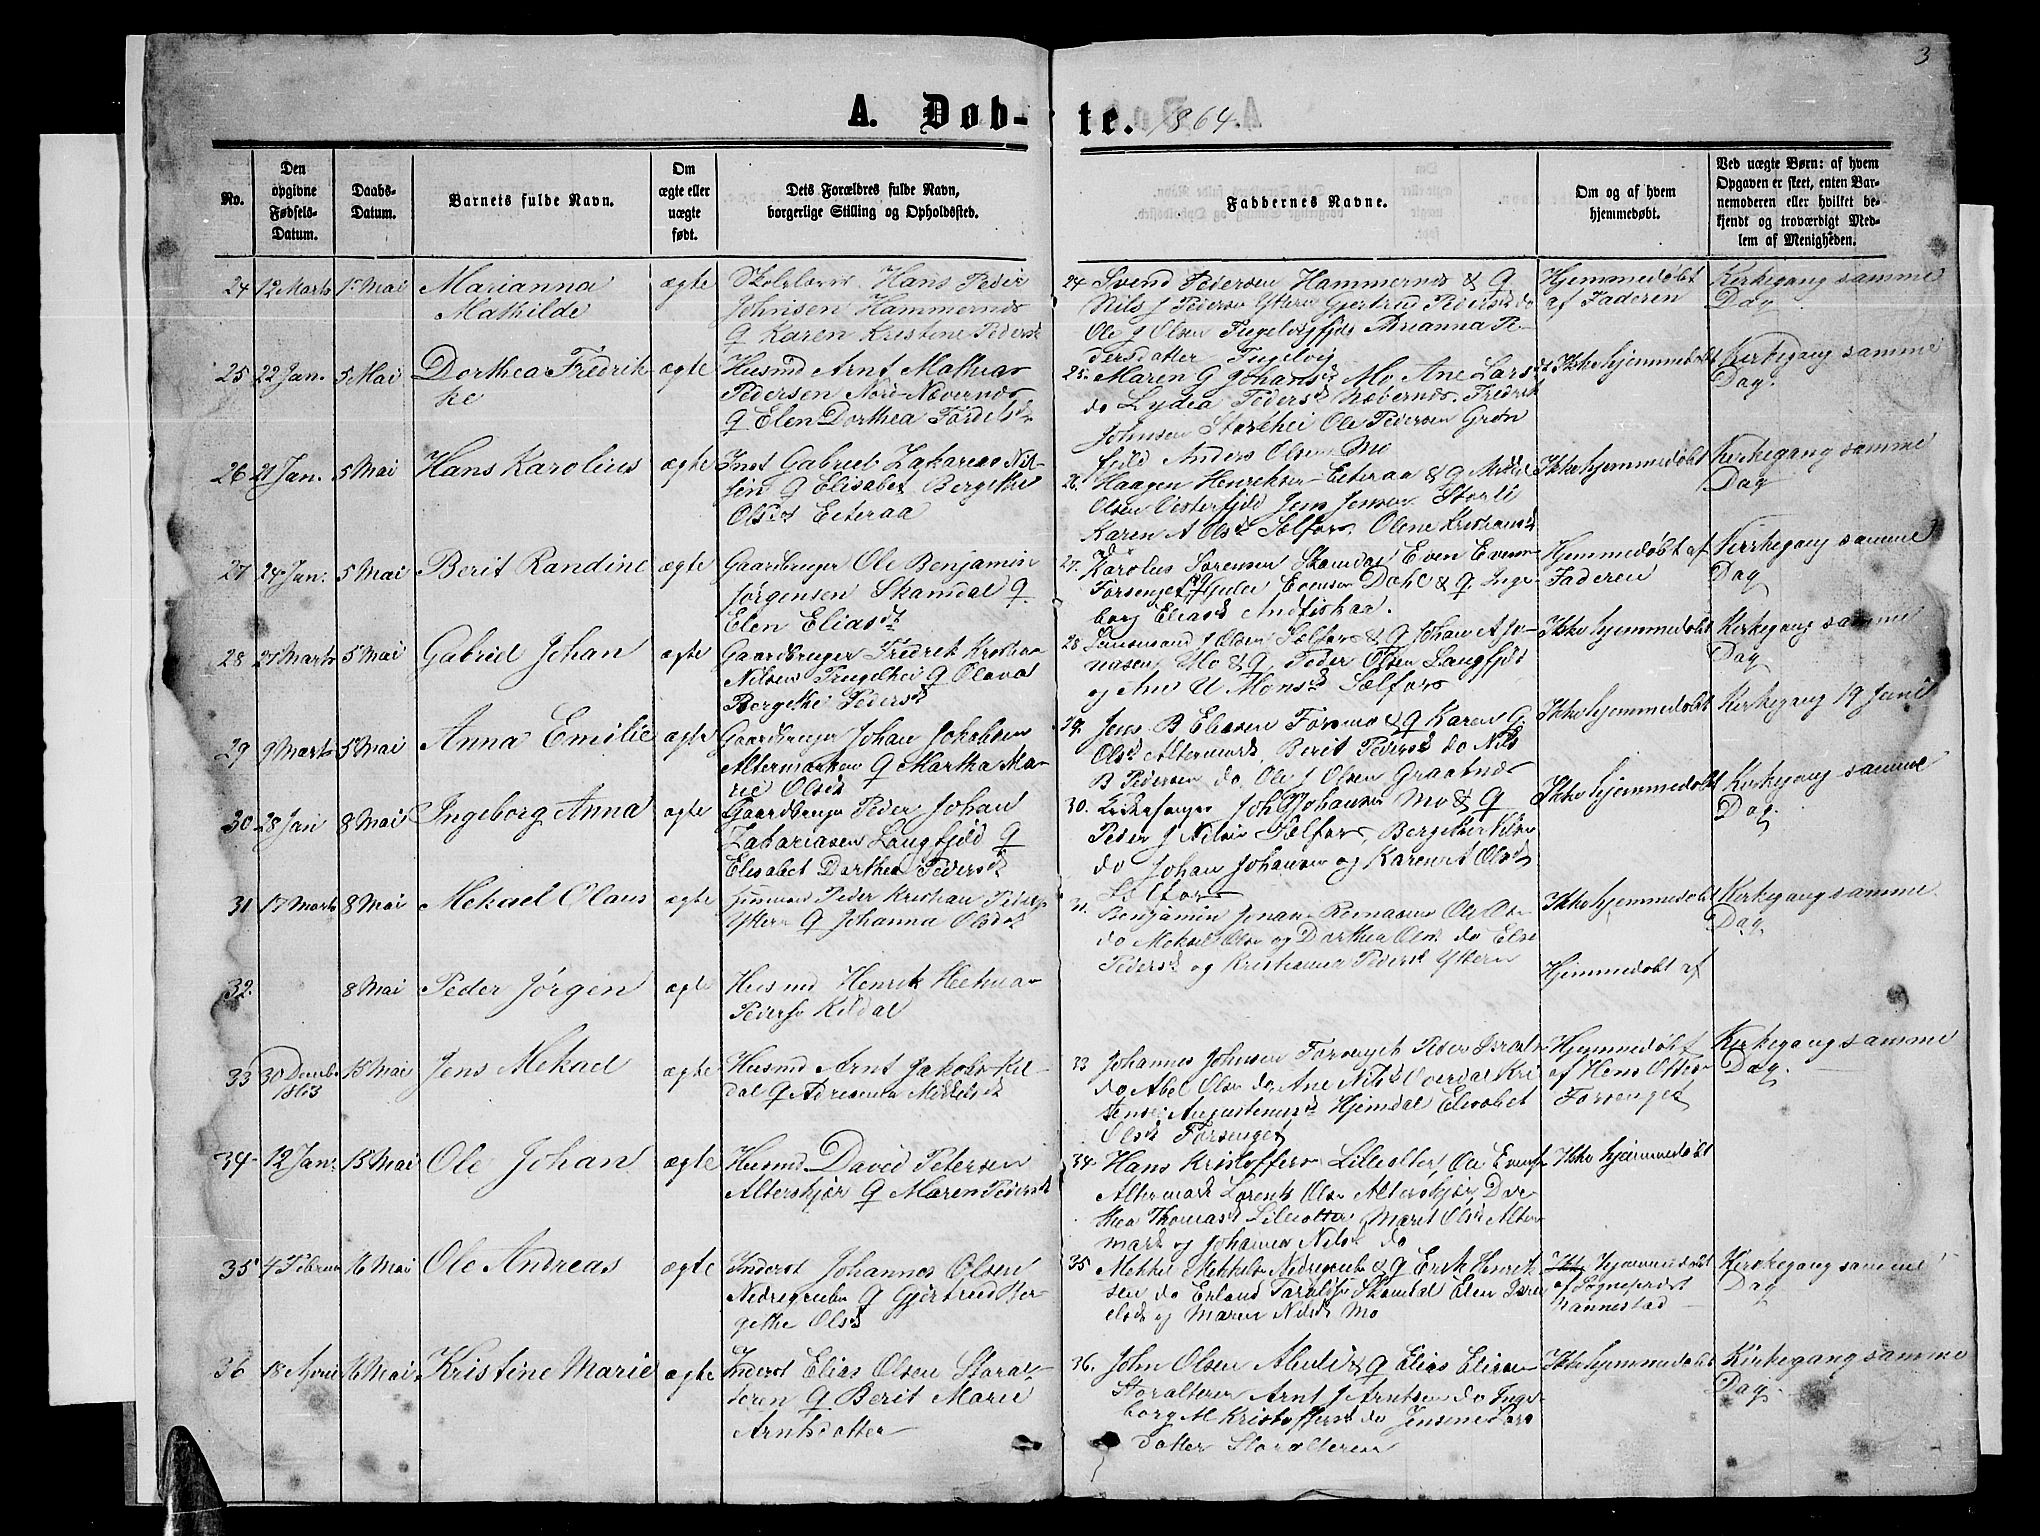 3
A. Døb-te. 1864.
No.
Den opgivne Fødsels-Datum.
Daabs-Datum.
Barnets fulde Navn.
Om ægte eller uægte født.
Dets Forældres fulde Navn, borgerlige Stilling og Opholdssted.
Faddernes Navne.
Om og af hvem hjemmedøbt.
Ved uægte Børn: af hvem Opgaven er skeet, enten Barnemoderen eller hvilket bekjendt og troværdigt Medlem af Menigheden.
24 12 Marts 1ste Mai Marianna ægte Hans Peder
Mathilde Johnsen Hammernes
& Karen Kristine Pedersd
24. Svend Pedersen Hammernes & G
Nils J Pedersen Yttern Gjertrud Pedersd do
Ole J Olsen Arianna Pe-
dersdatter
Hjemmedøbt
af Faderen
Kirkegang samme
Dag
25 22 Jan. 5 Mai Dorthea Fredrik- ægte Husmd Arnt Mathias
ke Pedersen Nord Nævernes
& Elen Dorthea
25. Maren G Johansd Mo, Ane Larsd
do Lydia Pedersd Nævernes, Fredrik
Johnsen Storehei Ole Pedersen Grøn
fjeld Anders Olsen Mo
Ikke hjemmedøbt
Kirkegang samme
Dag.
26 21 Jan. 5 Mai Hans Karolius ægte Inst Gabriel Zakarias Nil-
sen & Elisabet Bergithe
Olsd Eiteraa
26. Haagen Henriksen Eiteraa & G
Olsen Jens Jensen Storli
Karen A Olsd Selfors, Olene Kristiansd
do
Ikke hjemmedøbt
Kirkegang samme
Dag
27 24 Jan. 5 Mai Berit Randine ægte Gaardbruger Ole Benjamin
Jørgensen Skamdal &
Elen Eliasd
27. Karolus Sørensen Skamdal Even Evens
Forsenget Evensen Dahl & G. Inge-
borg Eliasd
Hjemmedøbt af
Faderen
Kirkegang samme
Dag
28 27 Marts 5 Mai Gabriel Johan ægte Gaardbruger Fredrik Kristian
Nilsen & Olava
Bergithe Pedersd
28 Olsen Selfors & G Johan A Jo-
nasen, Mo & G, Peder Olsen Langfjeld
og Ane U Monsd Selfors
Ikke hjemmedøbt
Kirkegang samme
Dag
29 9 Marts 5 Mai Anna Emilie ægte Gaardbruger Johan Jakobsen
Altermarken & Martha Ma-
rie Olsd
29. Jens B Eliasen Forsmo & G Karen G
Olsd Altermark, Berit Pedersd do Nils
B Pedersen do, Ole J Olsen Graatnes
Ikke hjemmedøbt
Kirkegang 19 Juni
30 28 Jan 8 Mai Ingeborg Anna ægte Gaardbruger Peder Johan
Zakariasen Langfjeld &
Elisabet Dorthea Pedersd
30. Kirkesanger Joh Johansen Mo & G
Peder J Nilsen Selfors, Bergithe Nilsd
do Johan Johansen og Karen A Olsd
Selfors
Ikke hjemmedøbt
Kirkegang samme
Dag.
31 17 Marts 8 Mai Mekael Olaus ægte Husmd Peder Kristian Peders
Yttern & Johanna Olsd
31. Benjamin Jonas Ole Ols
do Mekael Olsn og Dorthea Olsd do Else
Pedersd og Kristianna Pedersd Yttern
Ikke hjemmedøbt
Kirkegang samme
Dag
32. 8 Mai Peder Jørgen ægte Husmd Henrik
Peders Kildal
Hjemmedøbt af
33 30 Decmb. 15 Mai Jens Mekael ægte Husmd Arnt Jakobs Kil-
1863 dal & Mikkelsd
33 Johannes Johnsen Forsenget Peder
do Abel Olsn do Ane Nilsd Overdal Kri
stense Augustinusd Hjemdal Elisabet
Olsd Forsenget
Hjemmedøbt
af Hans Ottes
Forsenget
Kirkegang samme
Dag.
34 12 Jan. 15 Mai Ole Johan ægte Husmd David Petersen
Alterskjær & Maren Pedersd
34 Hans Kristoffers Lillealter, Ole Evens
Altermark Lorents Olsn Alterskjær, Dor-
thea Thomasd Lillealter Marit Olsd Alter
mark og Johanna Nilsd do
Ikke hjemmedøbt
35 4 Februar 16 Mai Ole Andreas ægte Inderst Johannes Olsen
Nedregruben & Gjertrud Ber-
gethe Olsd
35 Mekkel Mekkelsn Nedregruben & G Erik Henrik
sen do Erland Skamdal Elen Isra
elsd og Maren Nilsd Mo
Ikke hjemmedøbt
af Sogneprest
Bannestad
Kirkegang samme
Dag
36 18 April 16 Mai Kristine Marie ægte Inderst Elias Olsen Storal-
teren & Berit Marie
Arntsdatter
36. John Olsen & G Elias Eliasen
Storalteren Arnt J Arntsen do Inge-
borg M Kristoffersd do Jensine Lars
datter Storalteren
Ikke hjemmedøbt
Kirkegang samme
Dag.